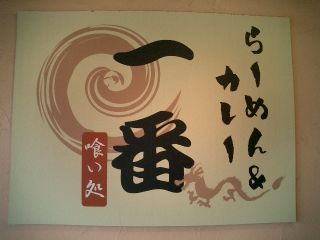 らーめん&
カレー
一番
喰い処